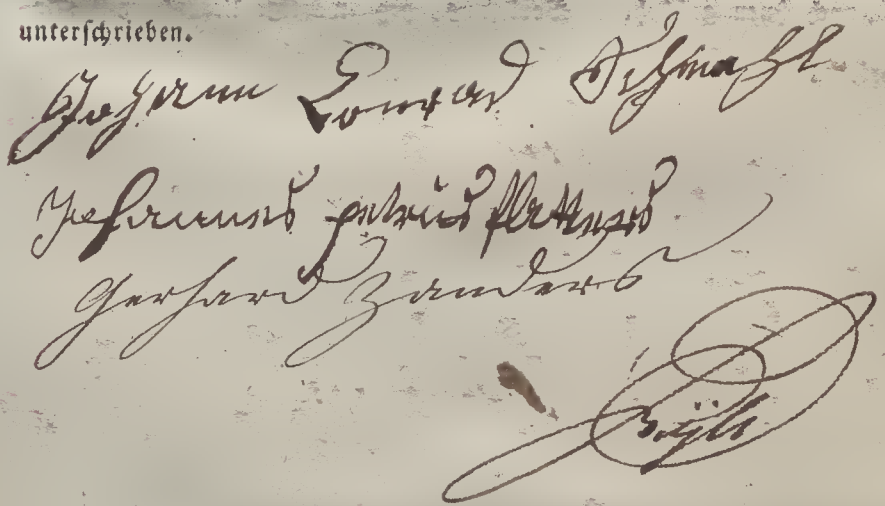 unterschrieben.
Johann Conrad Schmahl
Johannes petrus flatters
Gerhard Zanders